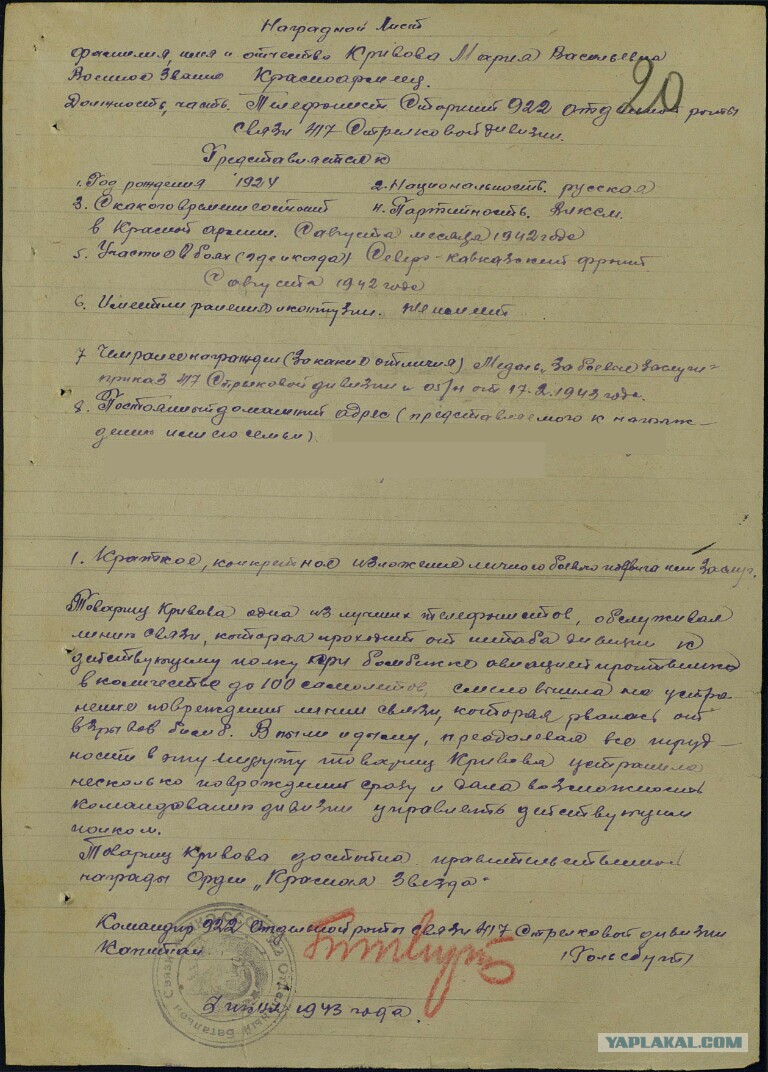 Наградной Лист
20
фамилия, имя и отчество Кривова Мария Васильевна
Военное звание Красноармеец.
Должность, часть. Телефонист Старший 922 отдельной роты
связи 417 Стрелковой дивизии.
Представляется к
1. Год рождения 1924 2. Национальность. русская
3. С какого времени состоит 4. Партийность. Влксм.
в Красной армии. С августа месяца 1942 года
5. Участие в боях (где и когда) Северо-Кавказский фронт
С августа 1942 года
6. Имеет ли ранения и контузии. не имеет
7 Чем ранее награжден (за какие отличия) Медаль „За боевые заслуги"
приказ 417 Стрелковой дивизии № 05/н от 17.2.1943 года.
8. Постоянный домашний адрес (представляемого к награж-
дению или его семьи).
1. Краткое, конкретное изложение личного боевого подвига или заслуг.
Товарищ Кривова одна из лучших телефонистов, обслуживая
линию связи, которая проходит от штаба дивизии к
действующему полку при бомбежке авиацией противника
в количестве до 100 самолетов, смело вышла на устра-
нение повреждений линии связи, которая рвалась от
взрывов бомб. В пыли и дыму, преодолевая все труд-
ности в эту минуту товарищ Кривова устранила
несколько повреждений сразу и дала возможность
командованию дивизии управлять действующим
полком.
Товарищ Кривова достойна правительственной
награды Орден „Красная Звезда"
Командир 922 Отдельной роты связи 417 Стрелковой дивизии
Капитан (Гольсбут)
1943 года.
Отдельный Батальон Связи
YAPLAKAL.COM